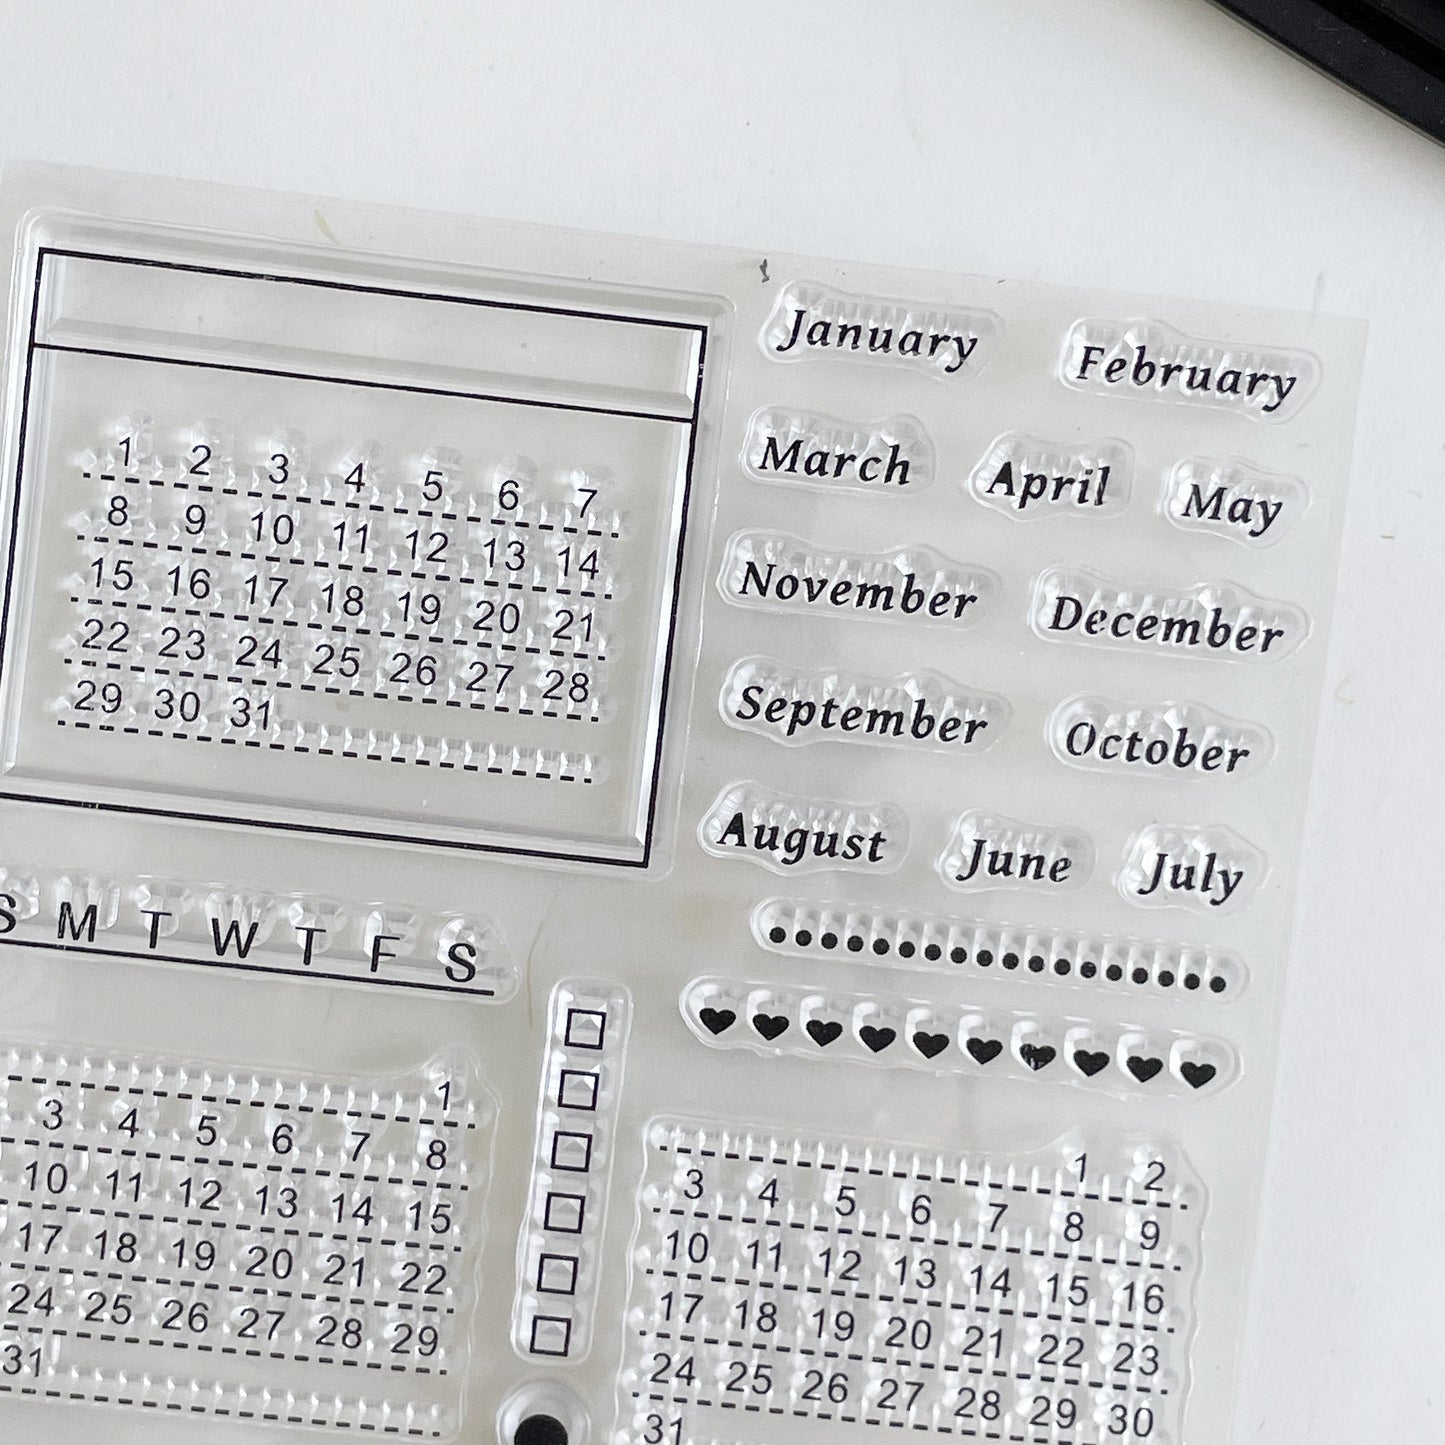 January February
March April May
November December
September October
August June July
1 2 3 4 5 6 7
8 9 10 11 12 13 14
15 16 17 18 19 20 21
22 23 24 25 26 27 28
29 30 31
S M T W T F S
1
3 4 5 6 7 8
10 11 12 13 14 15
17 18 19 20 21 22
24 25 26 27 28 29
31
1 2
3 4 5 6 7 8 9
10 11 12 13 14 15 16
17 18 19 20 21 22 23
24 25 26 27 28 29 30
31